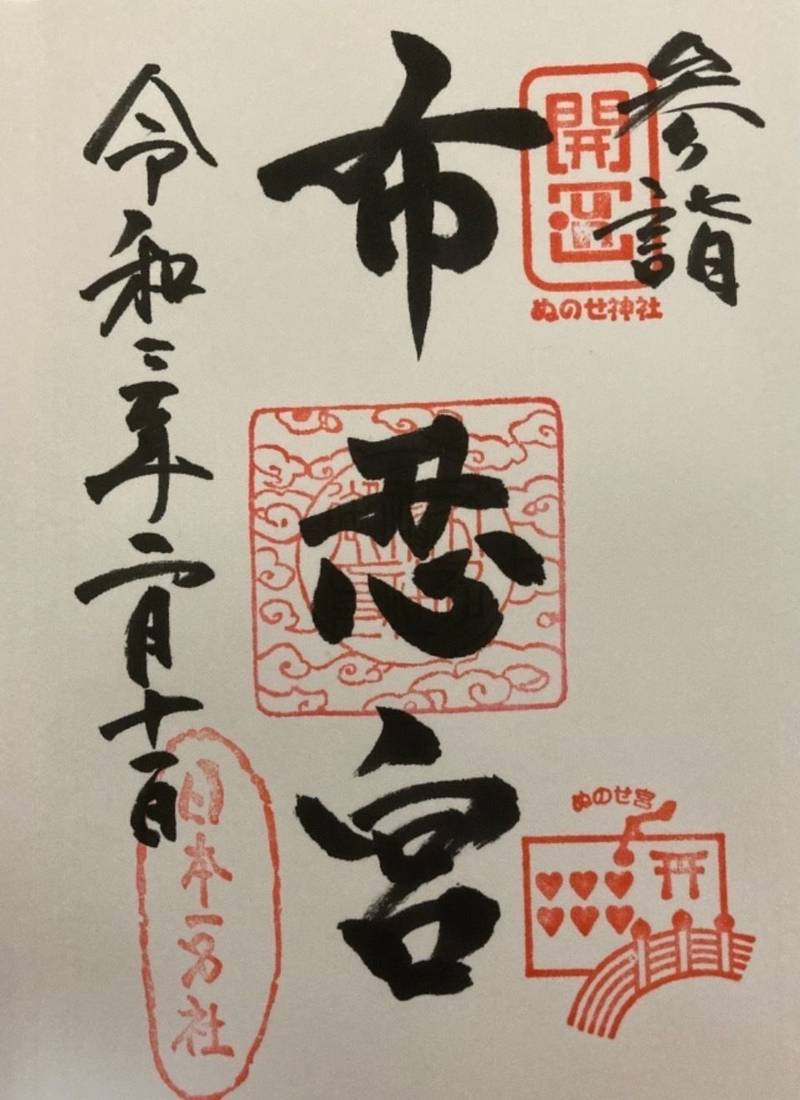 参詣
開運
ぬのせ神社
布忍宮
ぬのせ宮
令和三年二月十一日
日本一男社